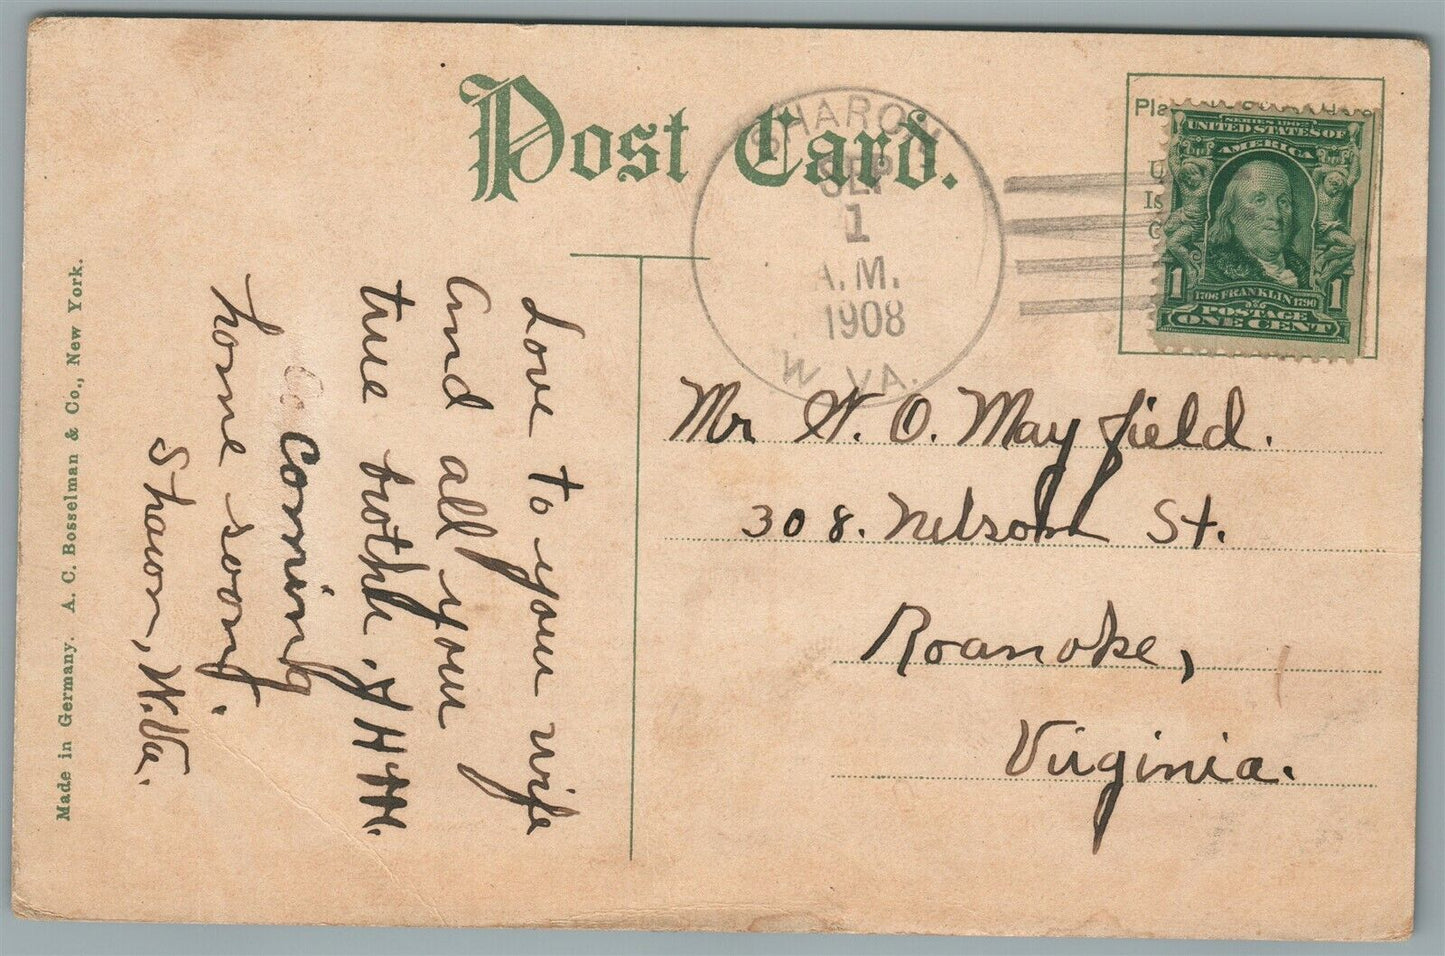 Post Card.
SHARON
SEP
1
A.M.
1908
W. VA.
SERIES 1902
UNITED STATES OF
AMERICA
1706 FRANKLIN 1790
1 1
POSTAGE
ONE CENT
Mr W. O. Mayfield.
308. Nelson St.
Roanoke,
Virginia.
Love to your wife
and all your
true brother. HHH.
Coming
home soon.
Sharon, W. Va.
Made in Germany. A. C. Bosselman & Co., New York.